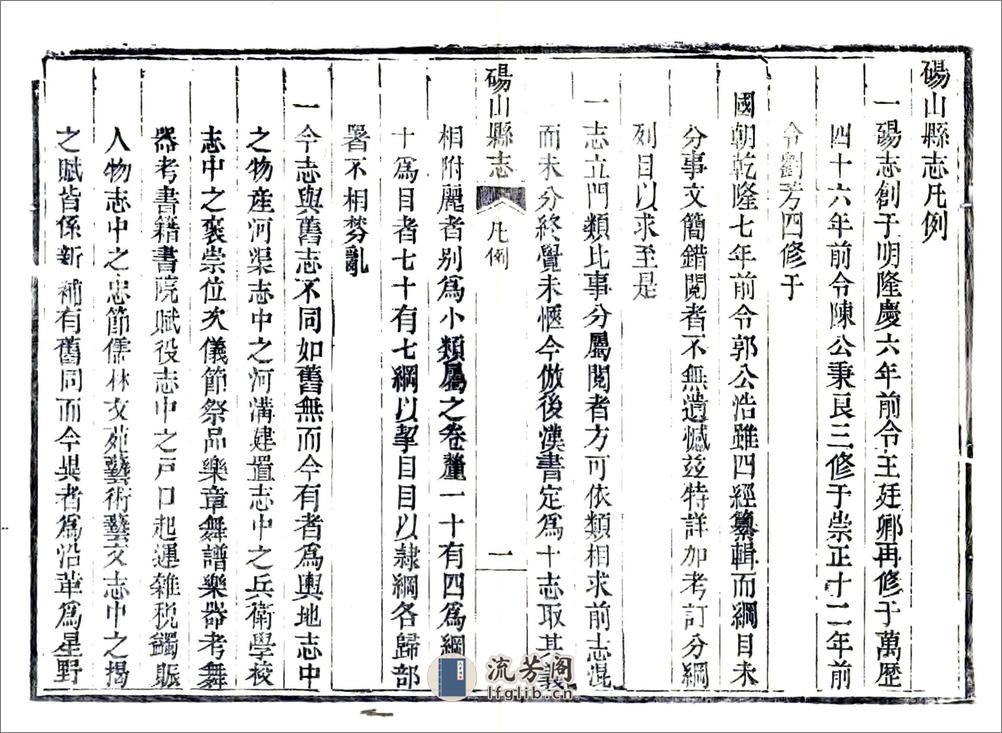 碭山縣志凡例
一碭志創于明隆慶六年前令王廷卿再修于萬歷
四十六年前令陳公秉良三修于崇正十二年前
令劉芳四修于
國朝乾隆七年前令郭公浩雖四經纂輯而綱目未
分事文簡錯閱者不無遺憾玆特詳加考訂分綱
列目以求至是
一志立門類比事分屬閱者方可依類相求前志混
而未分終覺未愜今倣後漢書定為十志取其義
碭山縣志
凡例
一
相附麗者別為小類屬之卷釐一十有四為綱
十為目者七十有七綱以挈目目以隸綱各歸部
署不相棼亂
一今志與舊志不同如舊無而今有者為輿地志中
之物產河渠志中之河溝建置志中之兵衛學校
志中之褒崇位次儀節祭品樂章舞譜樂器考舞
器考書籍書院賦役志中之戸口起運雜稅蠲賑
人物志中之忠節儒林文苑藝術藝文志中之揭
之賦皆係新補有舊同而今異者為沿革為星野
流芳阁
lfglib.cn